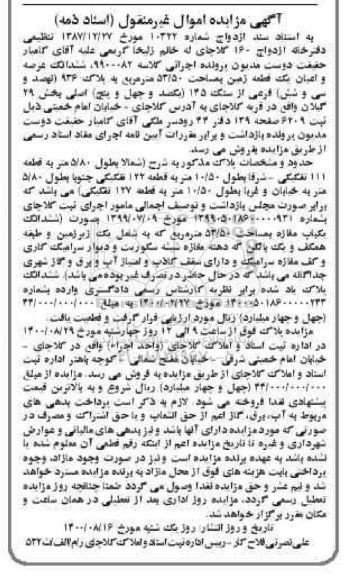 آگهی مزایده اموال غیرمنقول (اسناد ذمه)
به استناد سند ازدواج شماره ۱۰۳۲۲ مورخ ۱۳۸۷/۱۲/۲۷ تنظیمی
دفترخانه ازدواج ۱۶۰ کلاچای له خانم زلیخا کریمی علیه آقای کامیار
حقیقت دوست مدیون پرونده اجرائی کلاسه ۹۹۰۰۰۸۲، ششدانگ عرصه
و اعیان یک قطعه زمین بمساحت ۵۳/۵۰ مترمربع به پلاک ۹۳۶ (نهصد و
سی و شش) فرعی از سنگ ۱۴۵ (یکصد و چهل و پنج) اصلی بخش ۲۹
گیلان واقع در قریه کلاچای به آدرس کلاچای - خیابان امام خمینی ذیل
ثبت ۶۲۰۹ صفحه ۱۳۹ دفتر ۴۴ رودسر ملکی آقای کامیار حقیقت دوست
مدیون پرونده بازداشت و برابر مقررات آیین نامه اجرای مفاد اسناد رسمی
از طریق مزایده بفروش می رسد.
حدود و مشخصات پلاک مذکور به شرح (شمالا بطول ۵/۸۰ متر به قطعه
۱۱۱ تفکیکی - شرقا بطول ۱۰/۵۰ متر به قطعه ۱۲۲ تفکیکی جنوبا بطول ۵/۸۰
متر به خیابان و غربا بطول ۱۰/۵۰ متر به قطعه ۱۲۷ تفکیکی) می باشد که
برابر صورت مجلس بازداشت و توصیف اجمالی مامور اجرای ثبت کلاچای
بشماره ۱۳۹۹۰۵۰۱۸۶۱۰۰۰۰۹۳۱ مورخ ۱۳۹۹/۰۷/۰۹ بصورت (ششدانگ
یکباب مغازه بمساحت ۵۳/۵۰ مترمربع که به شامل یک زیرزمین و طبقه
همکف و یک بالکن که دهنه مغازه شیشه سکوریت و دیوار سرامیک کاری
و کف مغازه سرامیک و دارای سقف کاذب و امتیاز آب و برق و گاز شهری
جداگانه می باشد که در حال حاضر در تصرف غیر بوده می باشد). ششدانگ
پلاک یاد شده برابر نظریه کارشناس رسمی دادگستری وارده بشماره
مبلغ ۴۴/۰۰۰/۰۰۰/۰۰۰
(چهل و چهار میلیارد) ریال مورد ارزیابی قرار گرفت و قطعیت یافت.
مزایده پلاک فوق از ساعت ۹ الی ۱۲ روز چهارشنبه مورخ ۱۴۰۰/۰۸/۲۹
در اداره ثبت اسناد و املاک کلاچای (واحد اجرا) واقع در کلاچای -
خیابان امام خمینی شرقی - خیابان مفتح شمالی - کوچه باهنر اداره ثبت
اسناد و املاک کلاچای از طریق مزایده به فروش می رسد. مزایده از مبلغ
۴۴/۰۰۰/۰۰۰/۰۰۰ (چهل و چهار میلیارد) ریال شروع و به بالاترین قیمت
پیشنهادی نقدا فروخته می شود. لازم به ذکر است پرداخت بدهی های
مربوط به آب، برق، گاز اعم از حق انشعاب و یا حق اشتراک و مصرف در
صورتی که مورد مزایده دارای آنها باشد و نیز بدهی های مالیاتی و عوارض
شهرداری و غیره تا تاریخ مزایده اعم از اینکه رقم قطعی آن معلوم شده یا
نشده باشد به عهده برنده مزایده است و نیز در صورت وجود مازاد، وجوه
پرداختی بابت هزینه های فوق از محل مازاد به برنده مزایده مسترد خواهد
شد و نیم عشر و حق مزایده نقدا وصول می گردد ضمنا چنانچه روز مزایده
تعطیل رسمی گردد، مزایده روز اداری بعد از تعطیلی در همان ساعت و
مکان مقرر برگزار خواهد شد.
تاریخ و روز انتشار: روز یک شنبه مورخ ۱۴۰۰/۰۸/۱۶
علی نصرتی فلاح کار - رییس اداره ثبت اسناد و املاک کلاچای رام/الف/ث ۵۳۲